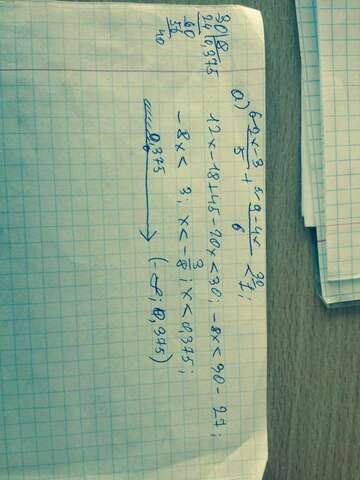 30 | 8
24 | 0,375
60
56
40
а) 6 2x-3/5 + 5 9-4x/6 < 30 1/1;
12x - 18 + 45 - 20x < 30; -8x < 30 - 27;
-8x < 3; x < -3/8; x < 0,375;
0,375 (-∞; 0,375)